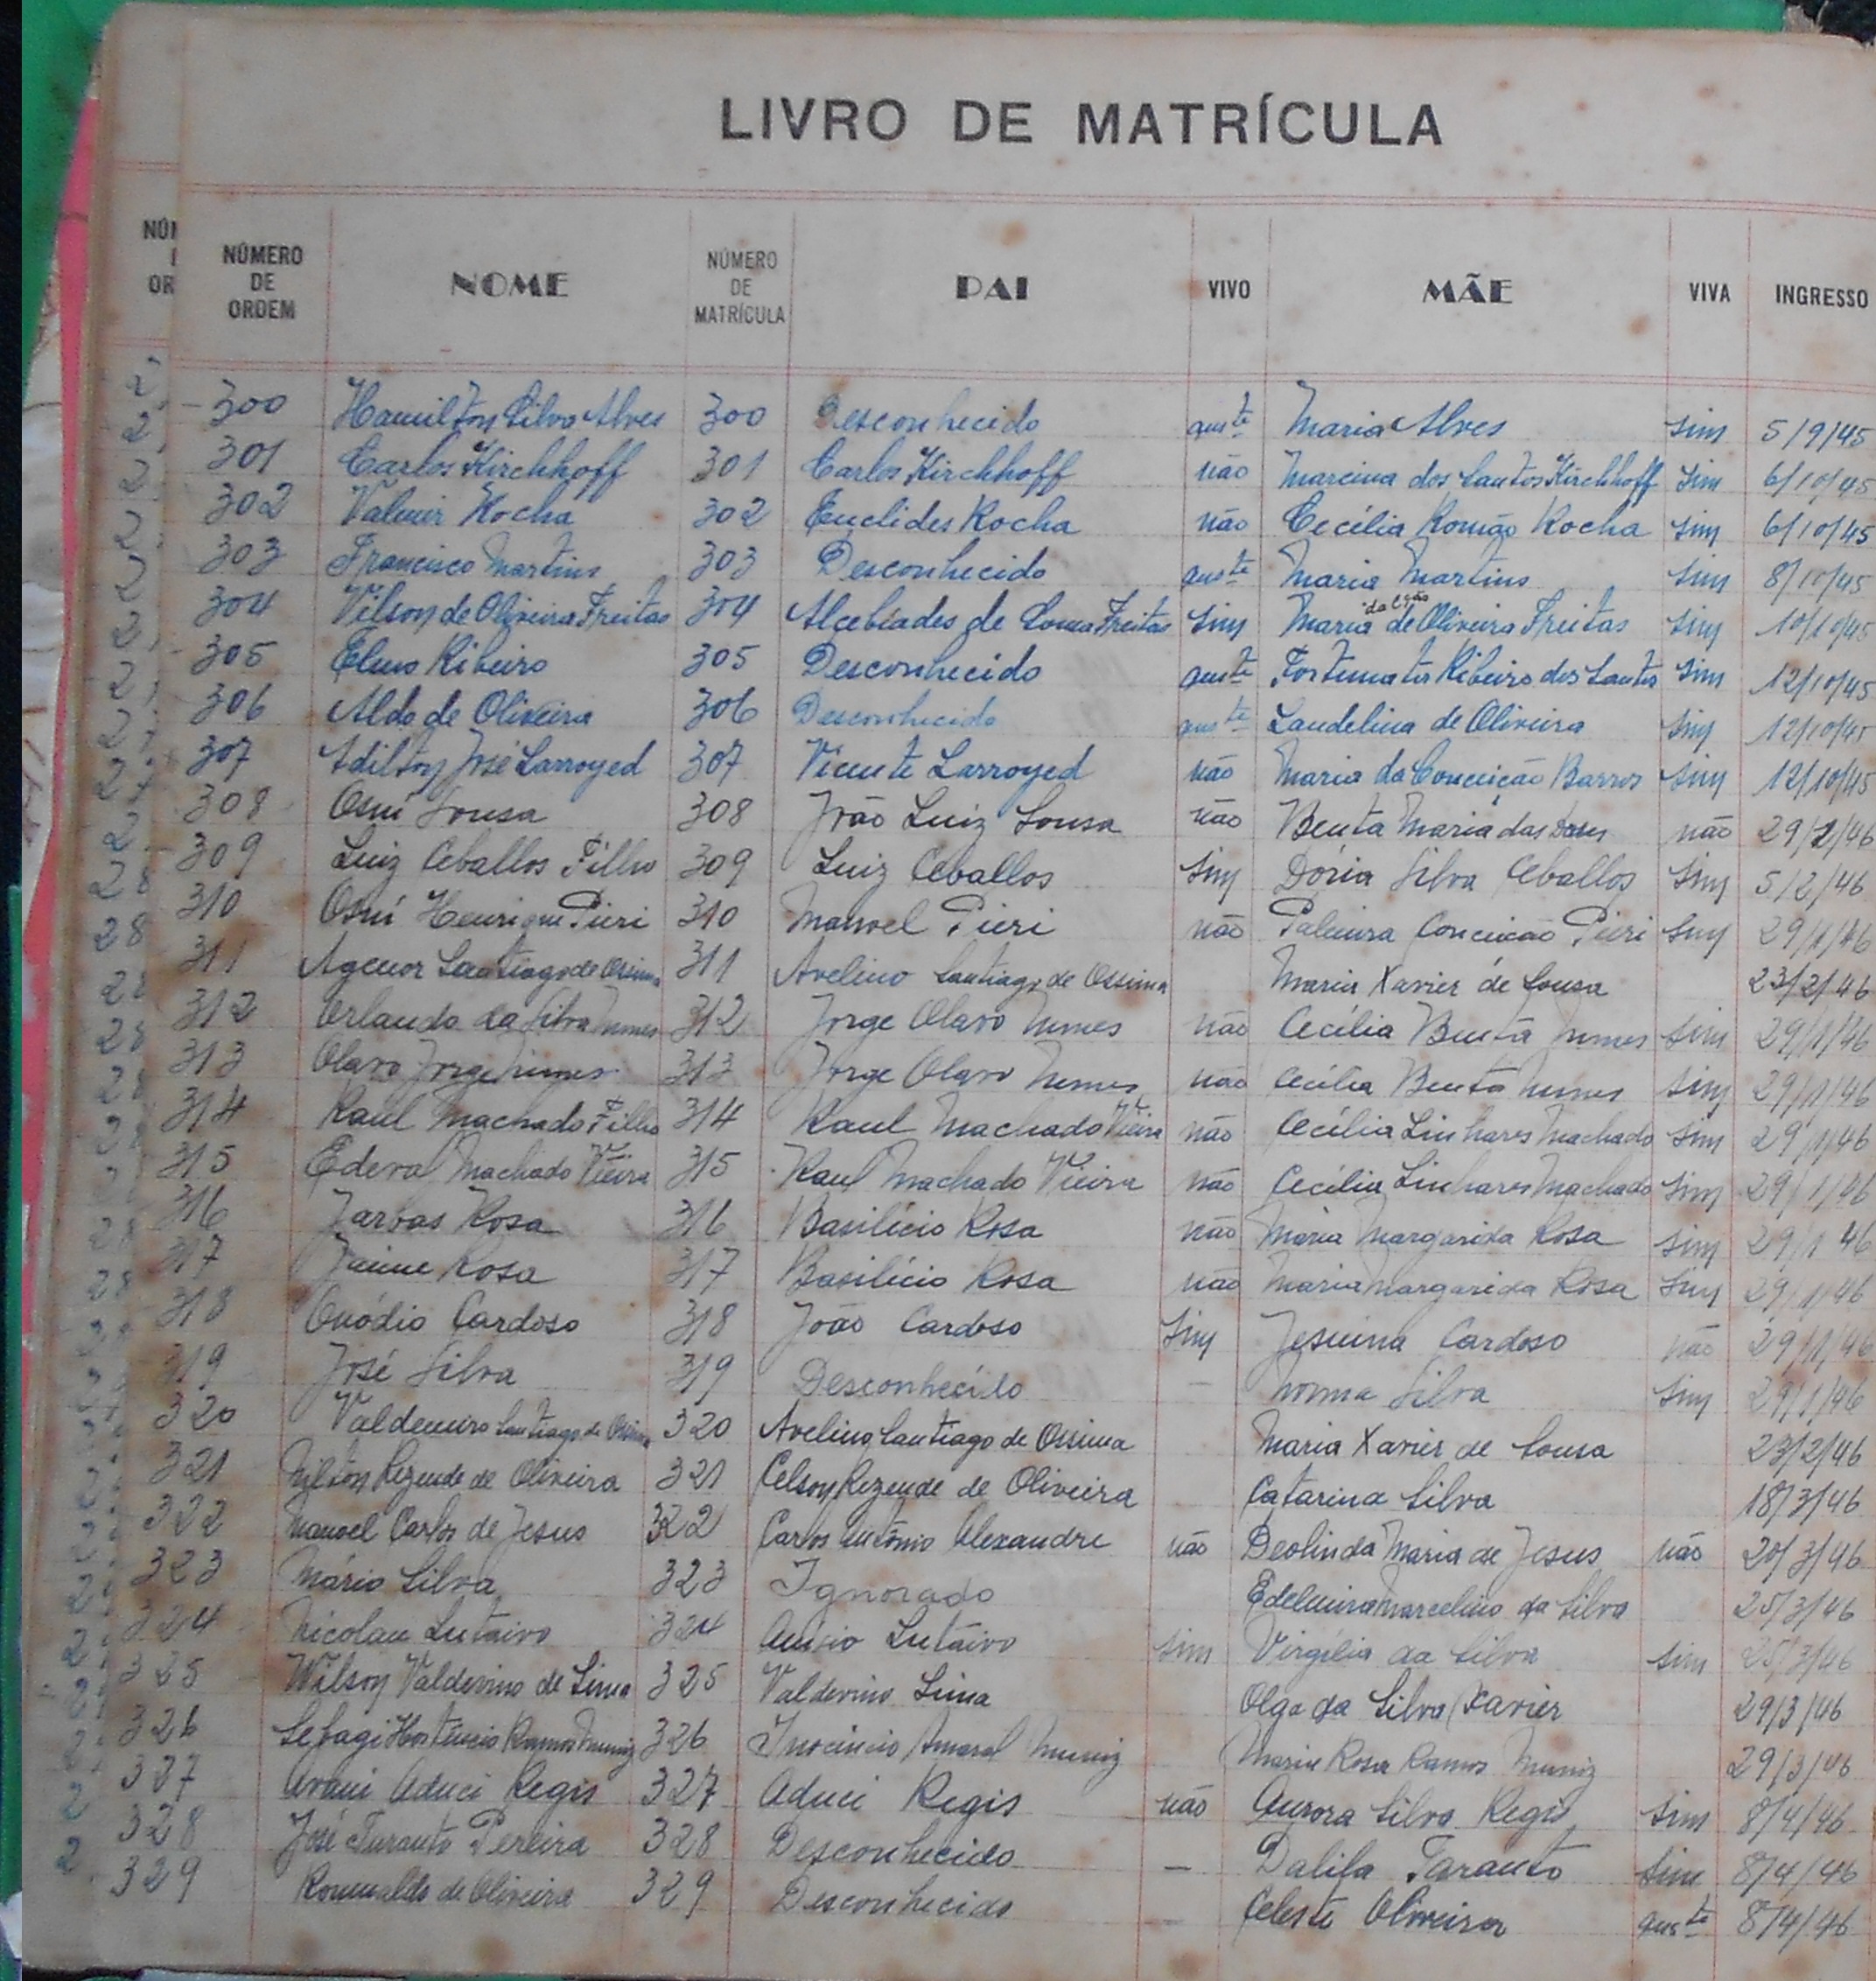 LIVRO DE MATRÍCULA
NÚMERO DE ORDEM NOME NÚMERO DE MATRÍCULA PAI VIVO MÃE VIVA INGRESSO
300 Hamilton Silva Alves 300 Desconhecido auste Maria Alves sim 5/9/45
301 Carlos Kirchhoff 301 Carlos Kirchhoff não Marcina dos Santos Kirchhoff sim 6/10/45
302 Valmir Rocha 302 Euclides Rocha não Cecília Romão Rocha sim 6/10/45
303 Francisco Martins 303 Desconhecido auste Maria Martins sim 8/10/45
304 Vilson de Oliveira Freitas 304 Alcebíades de Sousa Freitas sim Maria de Oliveira Freitas sim 10/10/45
305 Ribeiro 305 Desconhecido auste Ribeiro dos Santos sim 12/10/45
306 Aldo de Oliveira 306 Desconhecido auste Laudelina de Oliveira sim 12/10/45
307 Adilson José Larroyed 307 Vicente Larroyed não Maria da Conceição Barros sim 12/10/45
308 Osní Sousa 308 João Luiz Sousa não Benta Maria das Dores não 29/1/46
309 Luiz Ceballos Filho 309 Luiz Ceballos sim Dória Silva Ceballos sim 5/2/46
310 Osní Henrique Pieri 310 Manoel Pieri não Palmira Conceicão Pieri sim 29/1/46
311 Agenor Santiago de Ossima 311 Avelino Santiago de Ossima Maria Xavier de Sousa 23/2/46
312 Orlando da Silva Nunes 312 Jorge Olavo Nunes não Cecília Benta Nunes sim 29/1/46
313 Olavo Jorge Nunes 313 Jorge Olavo Nunes não Cecília Benta Nunes sim 29/1/46
314 Raul Machado Filho 314 Raul Machado Vieira não Cecília Linhares Machado sim 29/1/46
315 Ederal Machado Vieira 315 Raul Machado Vieira não Cecília Linhares Machado sim 29/1/46
316 Jarbas Rosa 316 Basilício Rosa não Maria Margarida Rosa sim 29/1 46
317 Jaime Rosa 317 Basilício Rosa não Maria Margarida Rosa sim 29/1/46
318 Onódio Cardoso 318 João Cardoso sim Jesuina Cardoso não 29/1/46
319 José Silva 319 Desconhecido – Norma Silva sim 29/1/46
320 Valdemiro Santiago de Ossima 320 Avelino Santiago de Ossima Maria Xavier de Sousa 23/2/46
321 Nilton Rezende de Oliveira 321 Celson Rezende de Oliveira Catarina Silva 18/3/46
322 Manoel Carlos de Jesus 322 Carlos Antônio Alexandre não Deolinda Maria de Jesus não 20/3/46
323 Mário Silva 323 Ignorado Edelmira Marcelino da Silva 25/3/46
324 Nicolau Lutaivo 324 Anísio Lutaivo sim Virgília da Silva sim 25/3/46
325 Wilson Valdevino de Lima 325 Valdevino Lima Olga da Silva Xavier 29/3/46
326 Hortêncio Ramos Muniz 326 Inocêncio Amaral Muniz Maria Rosa Ramos Muniz 29/3/46
327 Aduci Regis 327 Aduci Regis não Aurora Silva Regis sim 8/4/46
328 José Turanto Pereira 328 Desconhecido – Dalila Taranto sim 8/4/46
329 Romualdo de Oliveira 329 Desconhecido – Celeste Oliveira auste 8/4/46